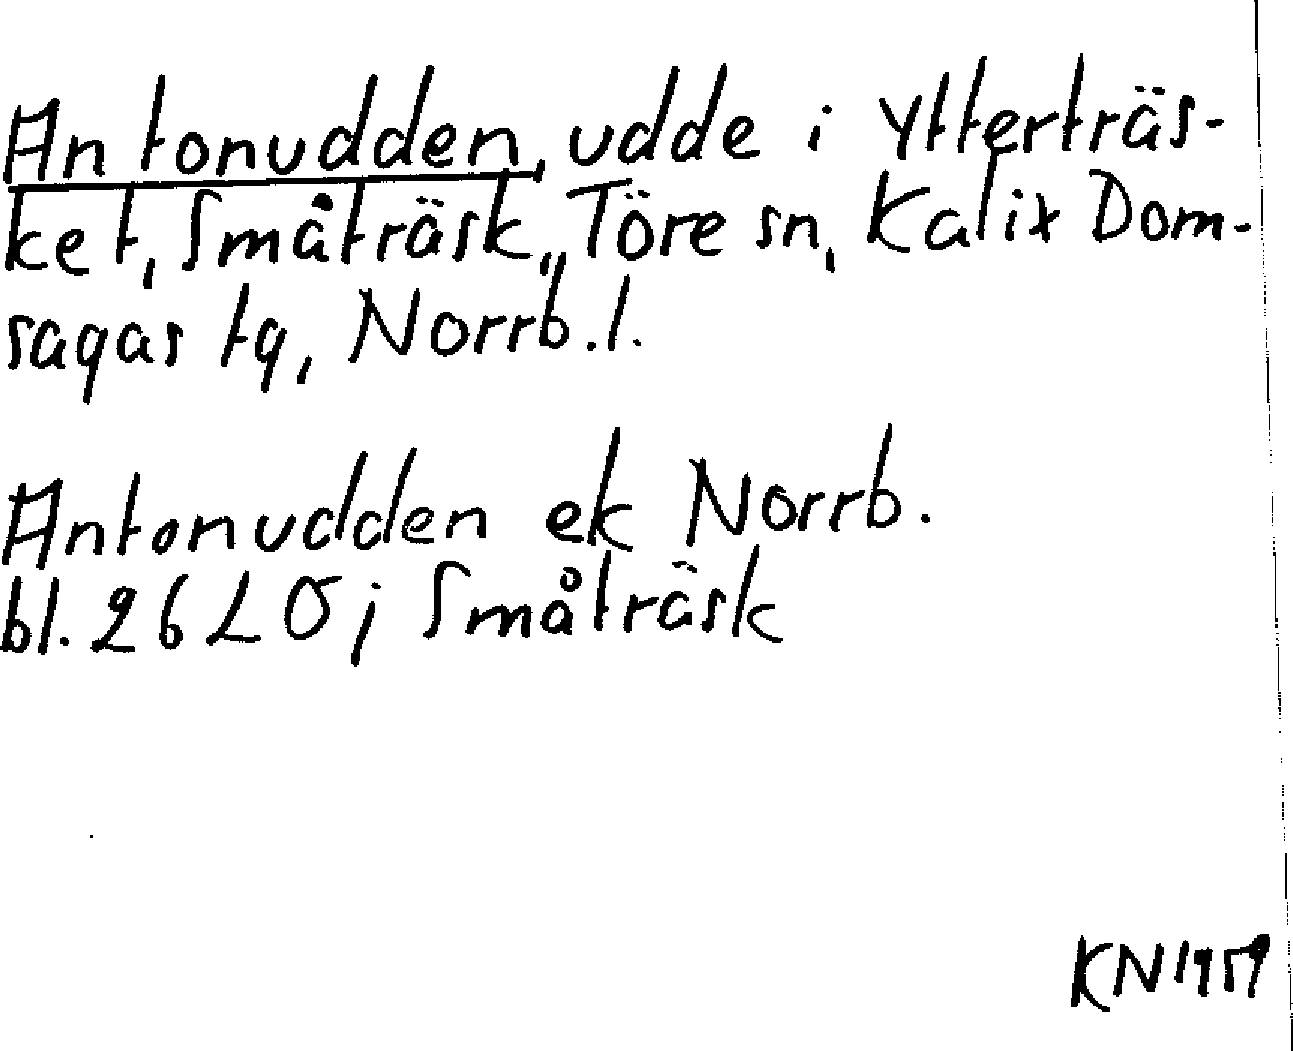 Antonudden, udde i Ytterträs-
ket, Småträsk, Töre sn, Kalix Dom-
sagas tg, Norrb.l.
Antonudden ek Norrb.
bl. 26 L O; Småträsk
KN 1959